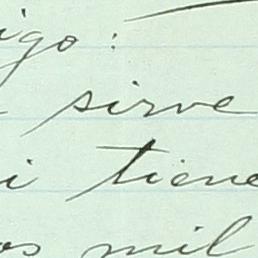 igo:
sirve
i tiene
os mil